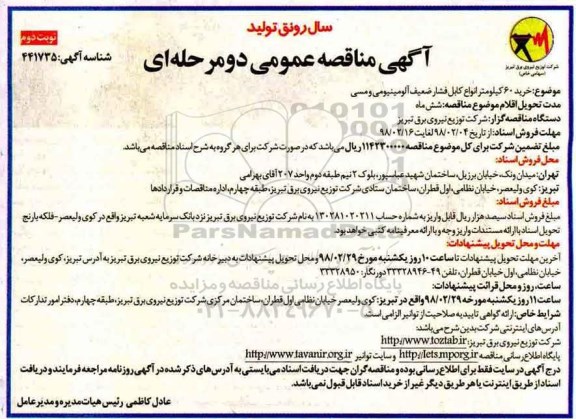 سال رونق تولید
نوبت دوم
آگهی مناقصه عمومی دو مرحله‌ای
شناسه آگهی: ۴۴۱۷۳۵
شرکت توزیع نیروی برق تبریز
(سهامی خاص)
موضوع: خرید ۶۰ کیلومتر انواع کابل فشار ضعیف آلومینیومی و مسی
مدت تحویل اقلام موضوع مناقصه: شش ماه
دستگاه مناقصه‌گزار: شرکت توزیع نیروی برق تبریز
مهلت فروش اسناد: از تاریخ ۹۸/۰۲/۰۴ لغایت ۹۸/۰۲/۱۶
مبلغ تضمین شرکت برای کل موضوع مناقصه ۱۱۴۲۳۰۰۰۰۰ ریال می‌باشد که در صورت شرکت برای هر گروه به شرح اسناد مناقصه می‌باشد.
محل فروش اسناد:
تهران: میدان ونک، خیابان برزیل، ساختمان شهید عباسپور، بلوک ۲ نیم طبقه دوم واحد ۲۰۷ آقای بهرامی
تبریز: کوی ولیعصر، خیابان نظامی، اول قطران، ساختمان ستادی شرکت توزیع نیروی برق تبریز، طبقه چهارم، اداره مناقصات و قراردادها
مبلغ فروش اسناد:
مبلغ فروش اسناد سیصد هزار ریال قابل واریز به شماره حساب ۱۳۰۲۸۱۰۲۰۲۱۱ به نام شرکت توزیع نیروی برق تبریز نزد بانک سرمایه شعبه تبریز واقع در کوی ولیعصر-فلکه بارنج
تحویل اسناد با ارائه مستندات واریز وجه و با ارائه معرفینامه کتبی خواهد بود.
مهلت و محل تحویل پیشنهادات:
آخرین مهلت تحویل پیشنهادات تا ساعت ۱۰ روز یکشنبه مورخ ۹۸/۰۲/۲۹ و محل تحویل پیشنهادات به دبیرخانه شرکت توزیع نیروی برق تبریز به آدرس تبریز، کوی ولیعصر،
خیابان نظامی، اول خیابان قطران، تلفن ۴۹-۳۳۳۲۸۹۴۶ دورنگار: ۳۳۳۲۸۹۵۰
ساعت، روز و محل قرائت پیشنهادات:
ساعت ۱۱ روز یکشنبه مورخه ۹۸/۰۲/۲۹ واقع در تبریز: کوی ولیعصر خیابان نظامی اول قطران، ساختمان مرکزی شرکت توزیع نیروی برق تبریز، طبقه چهارم، دفتر امور تدارکات
شرایط خاص: ارائه گواهی تایید به صلاحیت از توانیر الزامی است
آدرس‌های اینترنتی شرکت بدین شرح می‌باشد:
شرکت توزیع نیروی برق تبریز: http://www.toztab.ir
پایگاه اطلاع رسانی مناقصه http://iets.mporg.ir وسایت توانیر http://www.tavanir.org.ir
درج آگهی در سایت فقط برای اطلاع رسانی بوده و مناقصه‌گران جهت دریافت اسناد می‌بایستی به آدرس‌های ذکر شده در آگهی روزنامه مراجعه فرمایند و دریافت
اسناد از طریق اینترنت یا هر طریق دیگر غیر از خرید اسناد قابل قبول نمی‌باشد.
عادل کاظمی رئیس هیات مدیره و مدیرعامل
ParsNamad
پایگاه اطلاع رسانی مناقصه و مزایده
۰۲۱-۸۸۳۴۹۶۷۰-۵